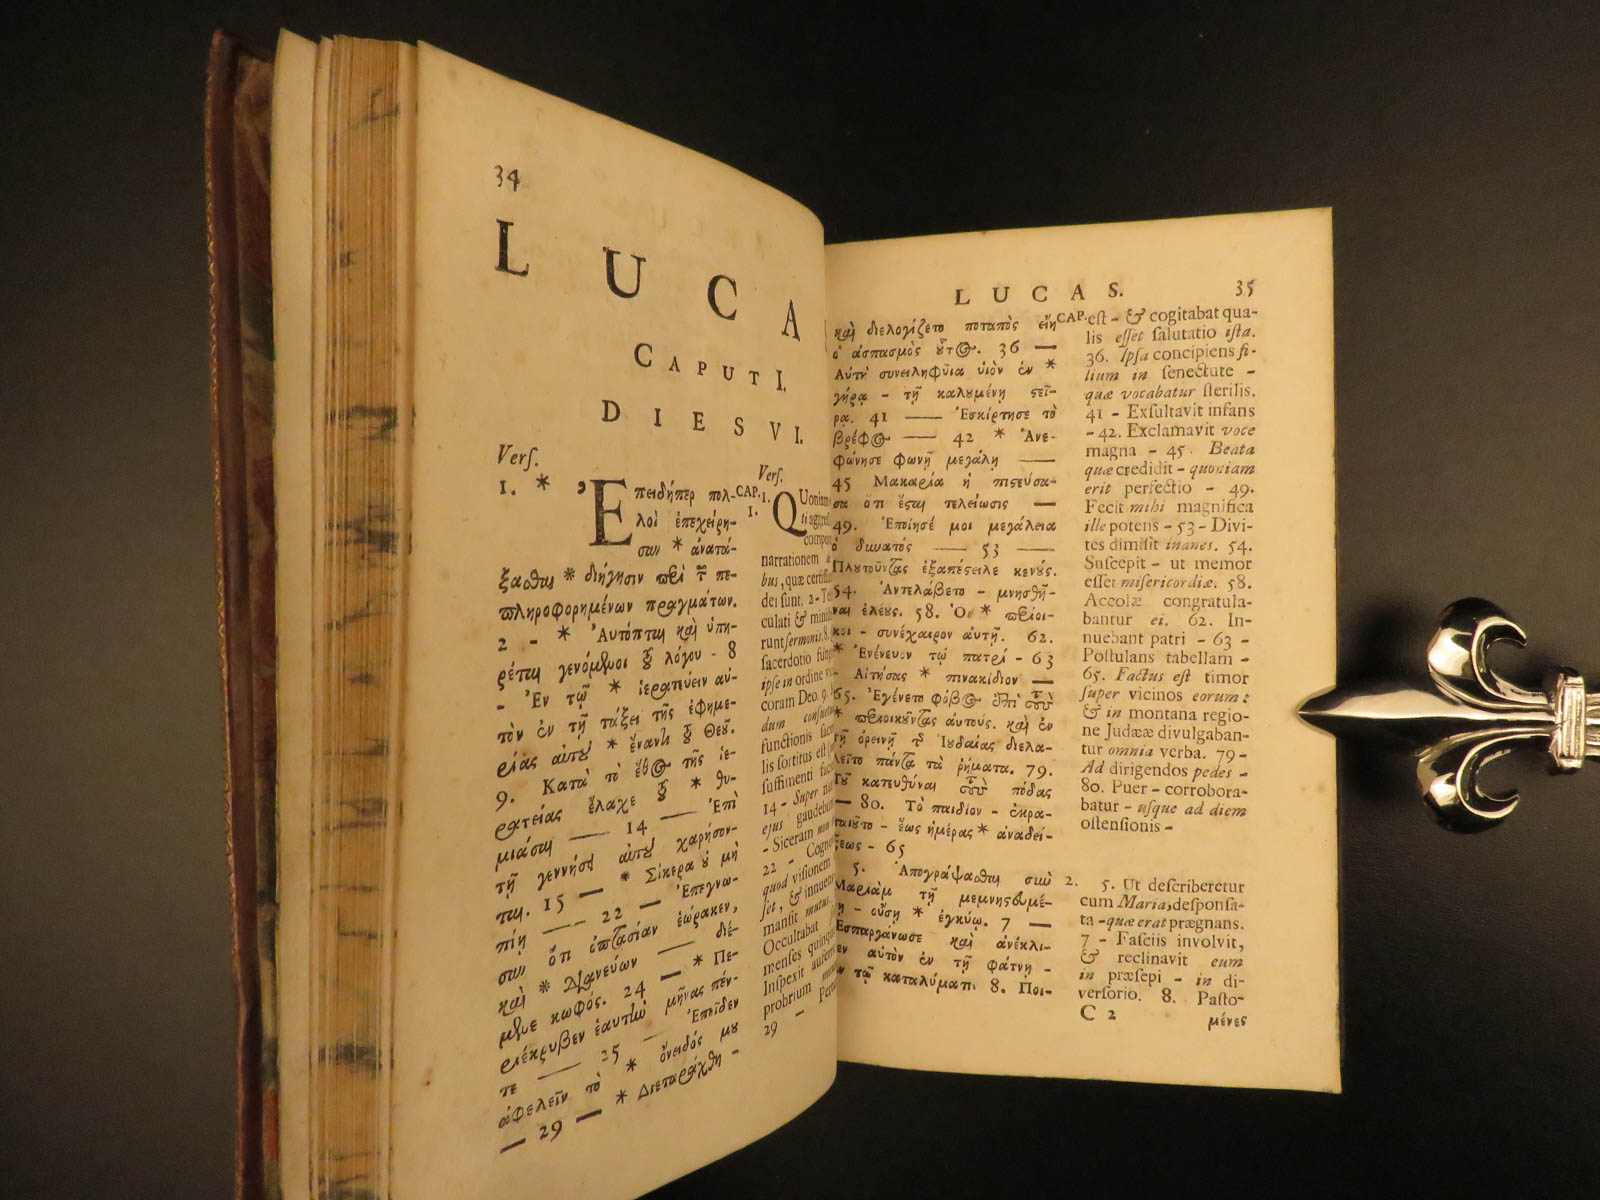 34
LUCA
CAPUT I.
DIES VI.
Verſ.
1. * Ἐπειδήπερ πολ-
λοὶ ἐπεχείρη-
σαν * ἀνατά-
ξασθαι * διήγησιν περὶ τῶν πε-
πληροφορημένων πραγμάτων.
2 - * Αὐτόπται καὶ ὑπη-
ρέται γενόμενοι τοῦ λόγου - 8
- Ἐν τῷ * ἱερατεύειν αὐ-
τὸν ἐν τῇ τάξει τῆς ἐφημε-
ρίας αὐτοῦ * ἔναντι τοῦ Θεοῦ.
9. Κατὰ τὸ ἔθος τῆς ἱε-
ρατείας ἔλαχε τοῦ * θυ-
μιάσαι — 14 — Ἐπὶ
τῇ γεννήσει αὐτοῦ χαρήσον-
ται. 15 — * Σίκερα οὐ μὴ
πίῃ — 22 — Ἐπεγνω-
σαν ὅτι ὀπτασίαν ἑώρακεν,
καὶ * διανεύων — διέ-
μενε κωφός. 24 — * Πε-
ριέκρυβεν ἑαυτὴν μῆνας πέν-
τε — 25 — Ἐπεῖδεν
ἀφελεῖν τὸ * ὄνειδός μου
— 29 — * Διεταράχθη -
Verſ.
CAP. 1.
I.
QUoniam
ti aggreſ
compon
narrationem
bus, quæ certiſſi
dei ſunt. 2 -
culati & miniſ
runt ſermonis. 8.
ſacerdotio fung
ipſe in ordine
coram Deo. 9.
dum conſuetu
functionis ſace
lis ſortitus eſt
ſuffimenti face
14 - Super
ejus gaudebun
- Siceram non
22 - Cogno
quod viſionem
ſet, & innuens
manſit mutus.
Occultabat
menſes quinque
Inſpexit auferre
probrium
29 - Pertu
LUCAS. 35
καὶ διελογίζετο ποταπὸς εἴη
ὁ ἀσπασμὸς οὗτος. 36 —
Αὐτὴ συνειληφυῖα υἱὸν ἐν *
γήρᾳ - τῇ καλουμένῃ στεῖ-
ρᾳ. 41 — Ἐσκίρτησε τὸ
βρέφος — 42 * Ἀνε-
φώνησε φωνῇ μεγάλῃ —
45 Μακαρία ἡ πιστεύσα-
σα ὅτι ἔσται τελείωσις —
49. Ἐποίησέ μοι μεγάλεια
ὁ δυνατός — 53 —
Πλουτοῦντας ἐξαπέστειλε κενούς.
54. Ἀντελάβετο - μνησθῆ-
ναι ἐλέους. 58. Οἱ * περίοι-
κοι - συνέχαιρον αὐτῇ. 62.
* Ἐνένευον τῷ πατρί - 63
- Αἰτήσας * πινακίδιον —
65. Ἐγένετο φόβος ἐπὶ τοὺς
* περιοικοῦντας αὐτούς. καὶ ἐν
τῇ ὀρεινῇ τῆς Ἰουδαίας διελα-
λεῖτο πάντα τὰ ῥήματα. 79.
Τοῦ κατευθῦναι τοὺς πόδας
— 80. Τὸ παιδίον - ἐκρα-
ταιοῦτο - ἕως ἡμέρας * ἀναδεί-
ξεως - 65
5. Ἀπογράψασθαι σὺν
Μαριὰμ τῇ μεμνηστευμέ-
νῃ - οὔσῃ * ἐγκύῳ. 7 —
Ἐσπαργάνωσε καὶ ἀνέκλι-
νεν αὐτὸν ἐν τῇ φάτνῃ -
ἐν τῷ καταλύματι 8. Ποι-
CAP. eſt - & cogitabat qua-
lis eſſet ſalutatio iſta.
36. Ipſa concipiens fi-
lium in ſenectute -
quæ vocabatur ſterilis.
41 - Exſultavit infans
- 42. Exclamavit voce
magna - 45. Beata
quæ credidit - quoniam
erit perfectio - 49.
Fecit mihi magnifica
ille potens - 53 - Divi-
tes dimiſit inanes. 54.
Suſcepit - ut memor
eſſet miſericordiæ. 58.
Accolæ congratula-
bantur ei. 62. In-
nuebant patri - 63 -
Poſtulans tabellam -
65. Factus eſt timor
ſuper vicinos eorum:
& in montana regio-
ne Judææ divulgaban-
tur omnia verba. 79 -
Ad dirigendos pedes -
80. Puer - corrobora-
batur - uſque ad diem
oſtenſionis -
2. 5. Ut deſcriberetur
cum Maria, deſponſa-
ta - quæ erat prægnans.
7 - Faſciis involvit,
& reclinavit eum
in præſepi - in di-
verſorio. 8. Paſto-
C 2 μένες